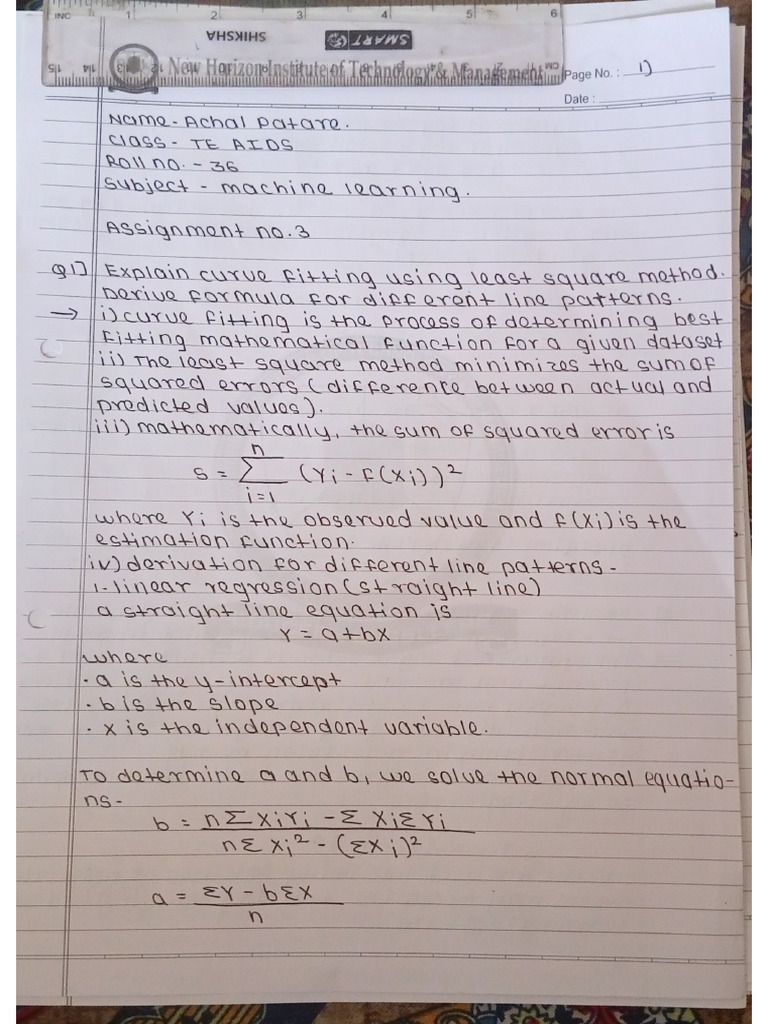 INC 1 2 3 4 5 6
SHIKSHA SMART
New Horizon Institute of Technology & Management
Page No. : 1)
Date :
Name - Achal Patare.
Class - TE AIDS
Roll no. - 36
Subject - machine learning.
Assignment no. 3
Q1] Explain curve fitting using least square method.
Derive formula for different line patterns.
→ i) curve fitting is the process of determining best
fitting mathematical function for a given dataset
ii) The least square method minimizes the sum of
squared errors (difference between actual and
predicted values).
iii) mathematically, the sum of squared error is
S = n Σ i=1 (Yi - f(Xi))²
where Yi is the observed value and f(Xi) is the
estimation function.
iv) derivation for different line patterns -
1. linear regression (straight line)
a straight line equation is
Y = a + bX
where
· a is the y-intercept
· b is the slope
· x is the independent variable.
To determine a and b, we solve the normal equatio-
ns -
b = nΣXiYi - ΣXiΣYi
nΣXi² - (ΣXi)²
a = ΣY - bΣX
n